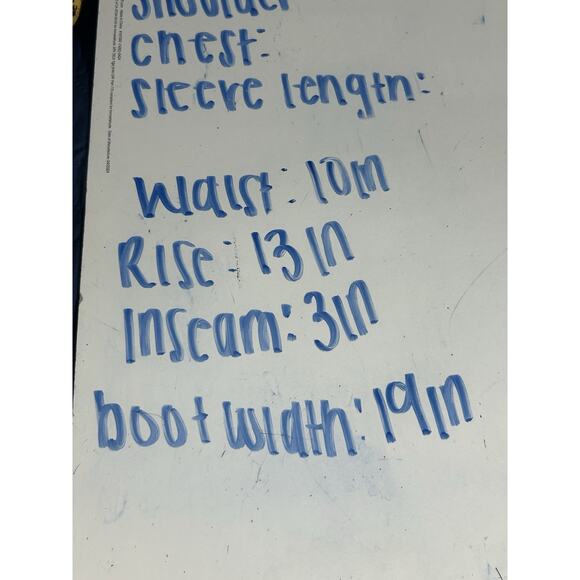 shoulder
chest:
sleeve length:
waist: 10in
Rise: 13in
Inseam: 3in
boot width: 19in